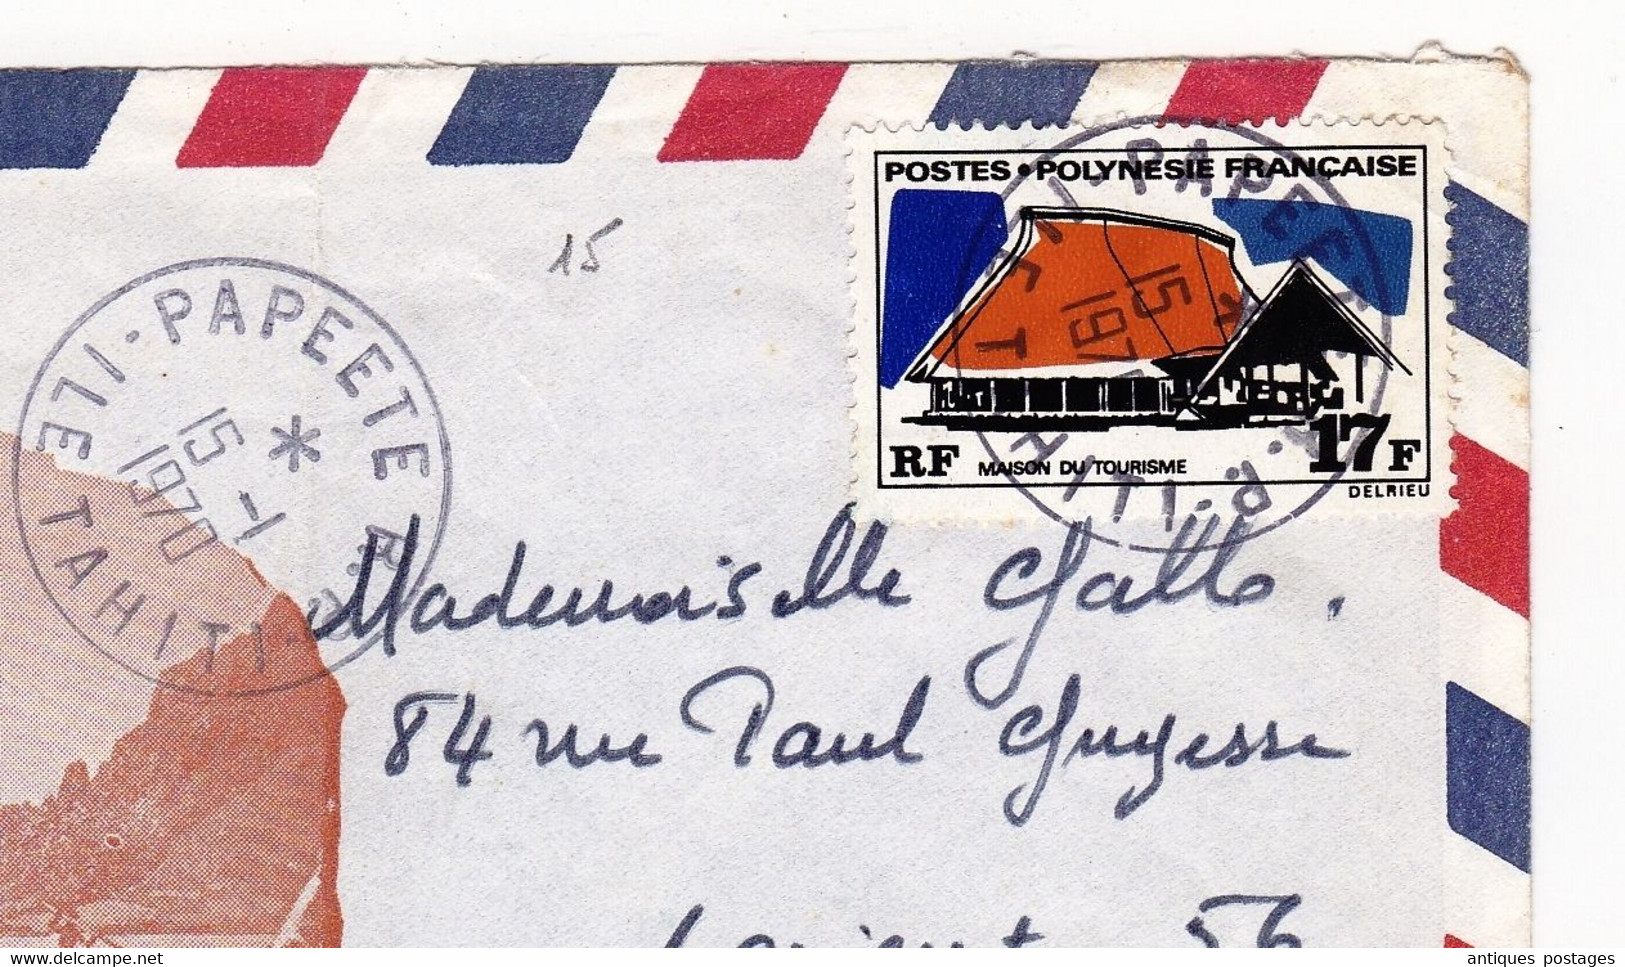 POSTES • POLYNESIE FRANÇAISE
RF MAISON DU TOURISME 17F
DELRIEU
15
PAPEETE R.P. ILE TAHITI
15-1
1970
PAPEETE R.P. ILE TAHITI
15
197
Mademoiselle Gallo.
84 rue Paul Guyesse
Lorient 56
antiques postages